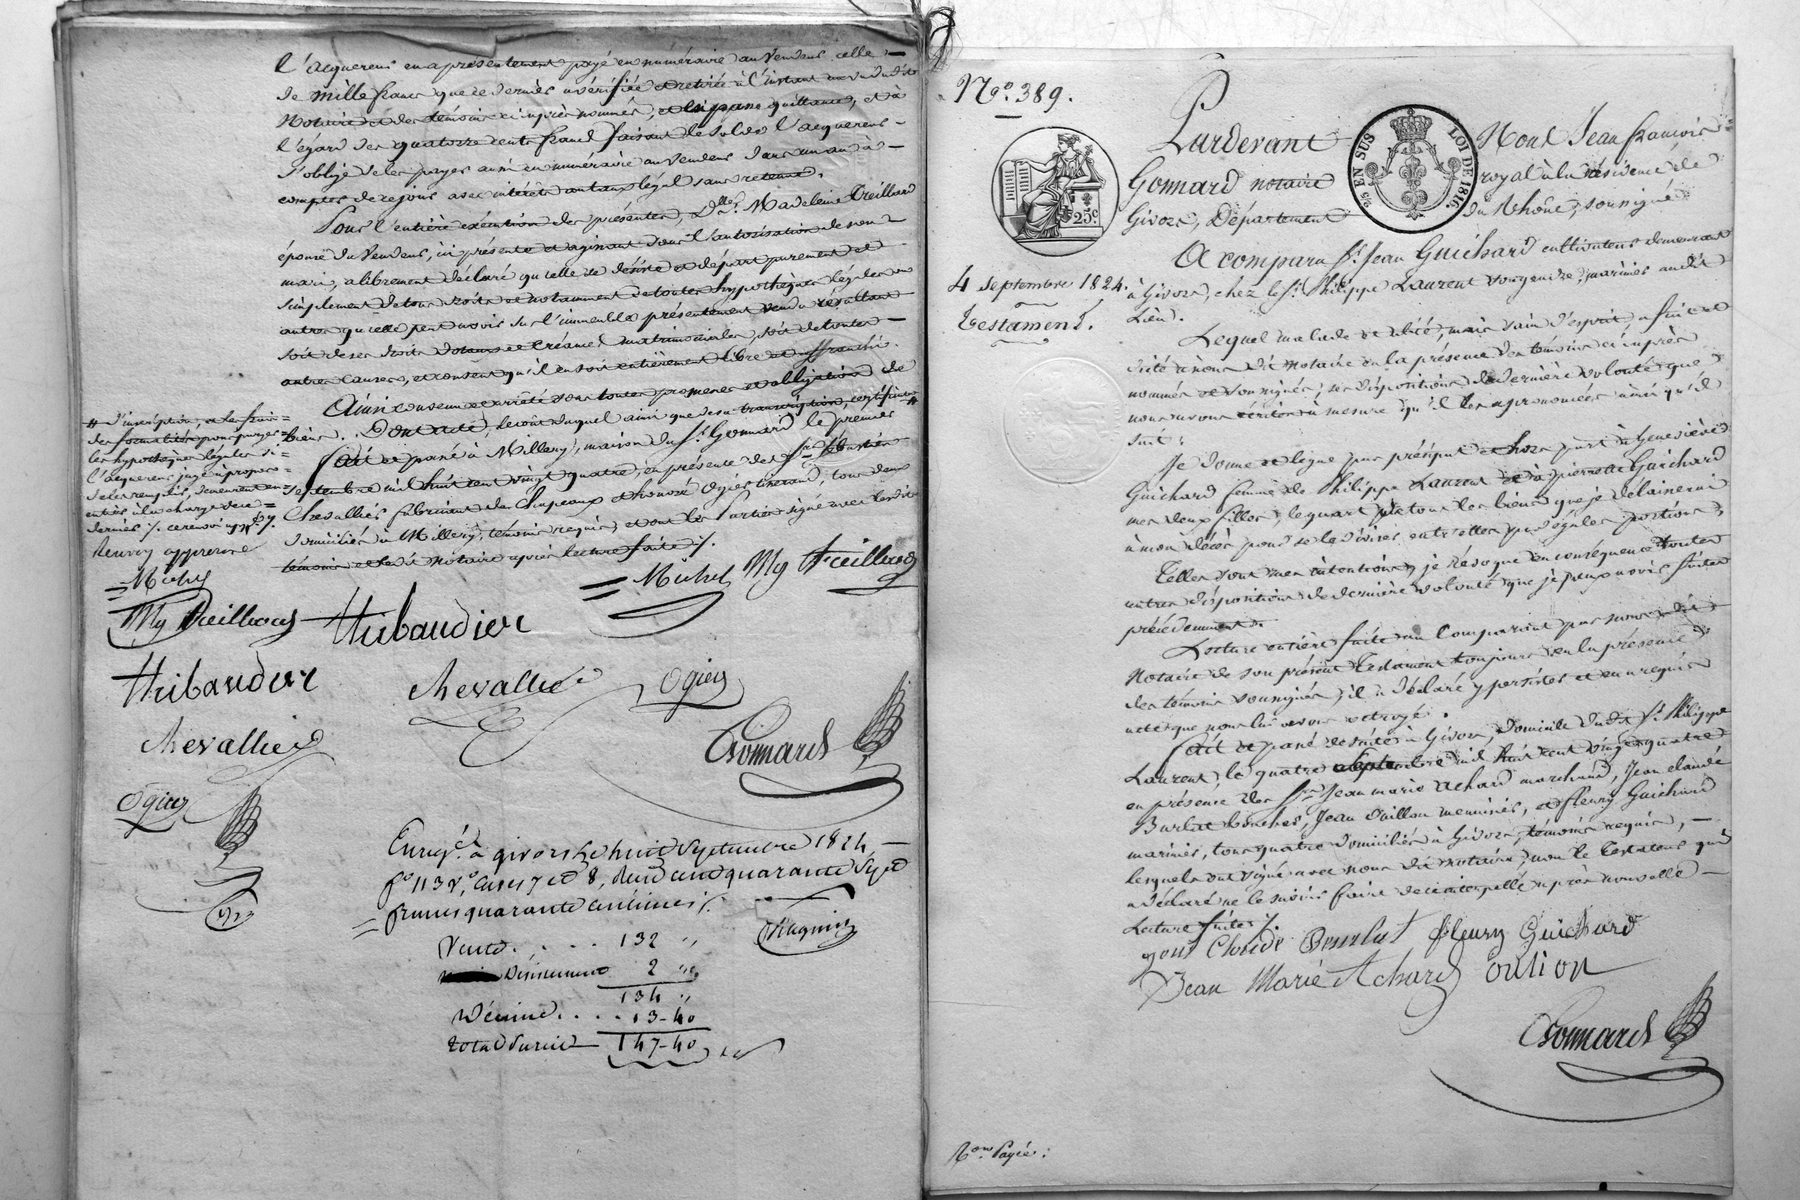 L'acquereur en a présentement payé en numéraire au vendeur celle
de mille francs que ce dernier a vérifiée et retirée à l'instant au vu dudit
Notaire et des témoins ci après nommés, et en passe quittance, et à
l'égard des quatorze cents francs faisant le solde l'acquereur
s'oblige de les payer aussi en numéraire au vendeur dans un an à
compter de ce jour avec intérêts au taux légal sans retenue.
Pour l'entière exécution des présentes, D.lle Madeleine Treilland
épouse du vendeur, ici présente et agissant sous l'autorisation de son
mari, a librement déclaré qu'elle se désiste et départ purement et
simplement de tous droits et notamment de toutes hypothèques légales ou
autres qu'elle peut avoir sur l'immeuble présentement vendu résultant
soit de ses droits dotaux et créances matrimoniales, soit de toutes
autres causes, et consent qu'il en soit entièrement libre et affranchi.
Ainsi convenu et arrêté sous toutes promesses et obligation de
biens. Dont acte, le coût duquel ainsi que de sa transcription, certificat #
fait et passé à Millery, maison du S.r Gonnard le premier
septembre mil huit cent vingt quatre, en présence des S.rs
Chevallier fabricant de Chapeaux et honoré Ogier tisserand, tous deux
domiciliés à Millery, témoins requis, et ont les Parties signé avec lesdits
témoins et ledit notaire après lecture faite /.
# d'inscription, et les frais
des formalités pour purger
les hypothèques légales si
l'acquereur juge à propos
de les remplir, demeurent en
entier à la charge de ce
dernier /.
Renvoy approuvé
Michel My Treilland
Michel
My Treilland Thibaudier
Thibaudier Chevallier Ogier
Chevallier Gonnard
Ogier
Enreg.é à givors le huit Septembre 1824,
f.o 113 v.o cases 7 et 8, Reçu cent quarante Sept
francs quarante centimes /.
Vente . . . . 132 "
Désistement 2 "
134 "
Décime . . . 13-40
total Parcil 147-40
N.o 389.
Pardevant Nous Jean françois
Gonnard notaire royal à la résidence de
Givors, Département du Rhône, soussigné
25 EN SUS LOI DE 1816.
25.c
4 Septembre 1824.
Testament.
A comparu S.r Jean Guichard cultivateur demeurant
à Givors, chez le S.r Philippe Laurent son gendre, marinier audit
Lieu.
Lequel malade et alité, mais sain d'esprit a fait et
dicté à nous dit notaire en la présence des témoins ci après
nommés et soussignés, ses dispositions de dernière volonté que
nous avons écrites à mesure qu'il les a prononcées ainsi qu'il
suit :
Je donne et lègue par préciput et hors part à Geneviève
Guichard femme de Philippe Laurent et à pierrette Guichard
mes deux filles, le quart de tous les biens que je delaisserai
à mon décès pour se le diviser entr'elles par égales portions,
Telles sont mes intentions, je révoque en conséquence toutes
autres dispositions de dernière volonté que je peux avoir faites
précédemment.
Lecture entière faite au Comparant par nous dit
Notaire de son présent Testament toujours en la présence
des témoins soussignés, il a déclaré y persister et en a requis
acte que nous lui avons octroyé.
fait et passé de suite à Givors, domicile dudit S.r Philippe
Laurent, le quatre septembre mil huit cent vingt quatre
en présence des S.rs Jean marie Achard marchand, Jean claude
Burlat boucher, Jean Oullion menuisier, et fleury Guichard
marinier, tous quatre domiciliés à Givors, témoins requis,
lesquels ont signé avec nous dit notaire, non le Testateur qui
a déclaré ne le savoir faire de ce interpellé après nouvelle
Lecture faite /.
fleury Guichard
Jean Marie Achard oulion
Gonnard